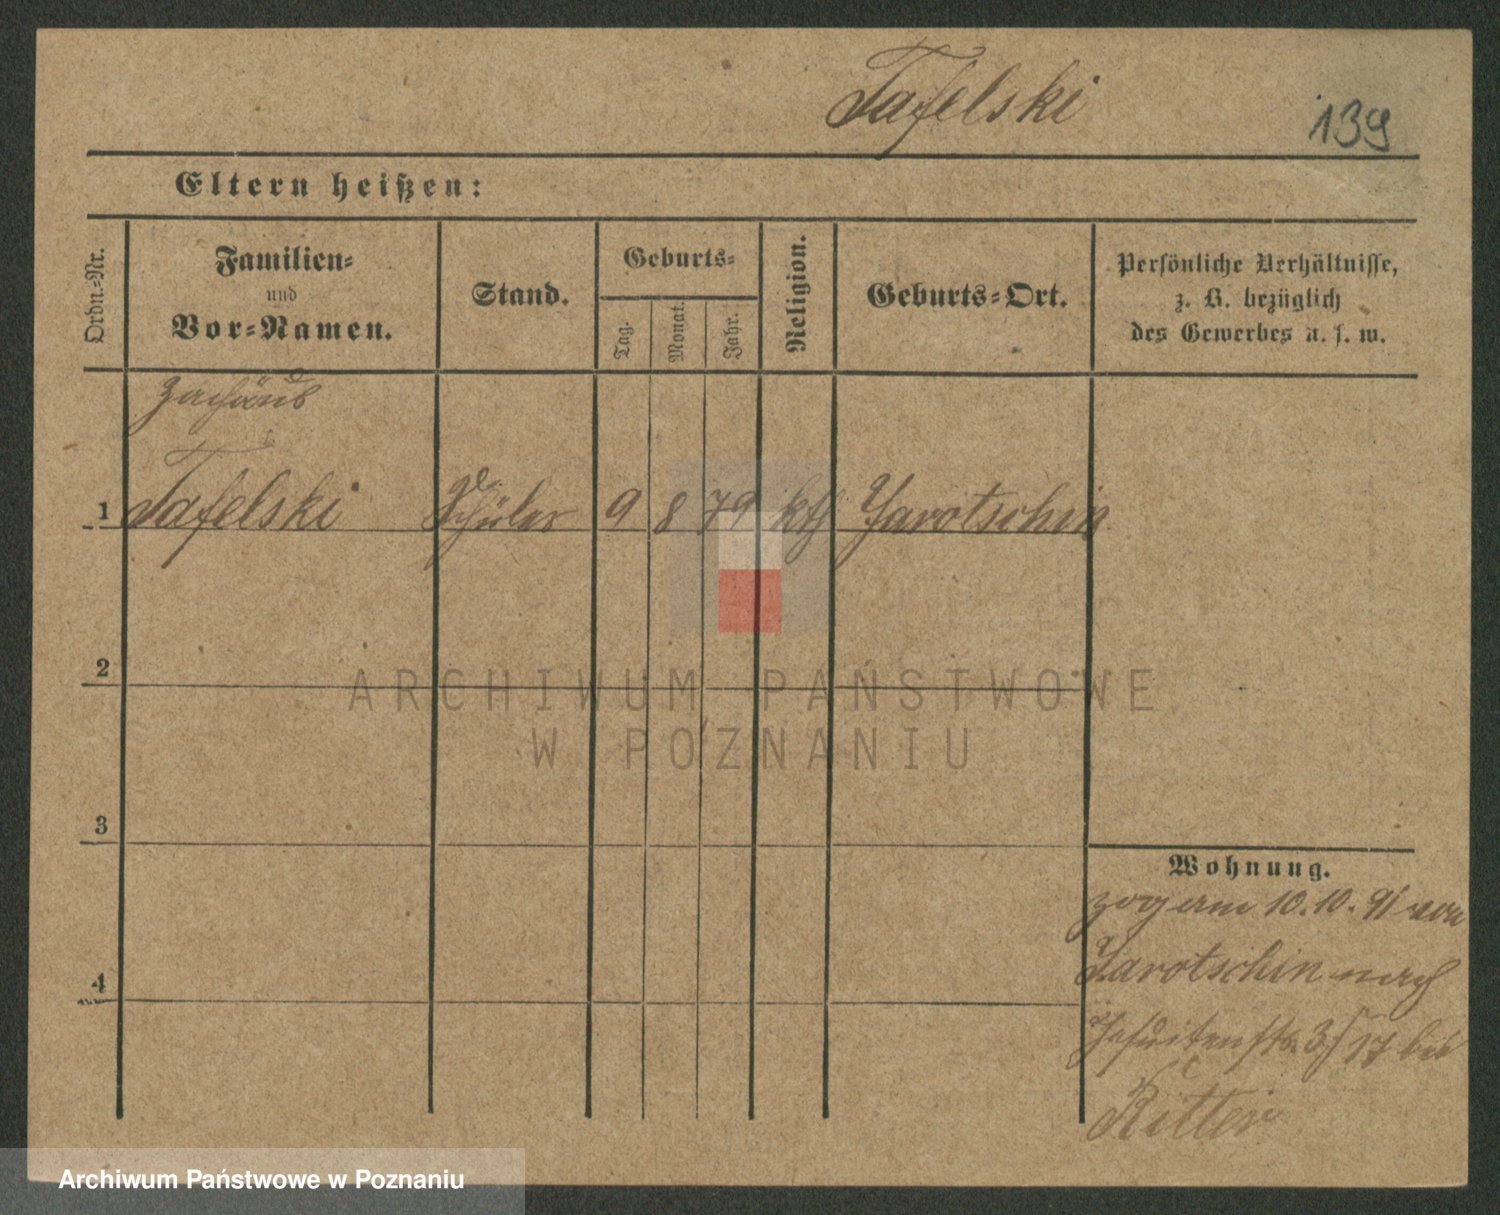 Tafelski
139
Eltern heißen:
Ordn.-Nr.
Familien-
und
Vor-Namen.
Stand.
Geburts-
Tag.
Monat.
Jahr.
Religion.
Geburts-Ort.
Persönliche Verhältnisse,
z. B. bezüglich
des Gewerbes u. s. w.
Zachäus
1 Tafelski Schüler 9 8 79 kth Jarotschin
2
3
4
Wohnung.
zog am 10.10.91 von
Jarotschin nach
Jesuitenstr. 3/17 bei
Ritter
ARCHIWUM PAŃSTWOWE
W POZNANIU
Archiwum Państwowe w Poznaniu